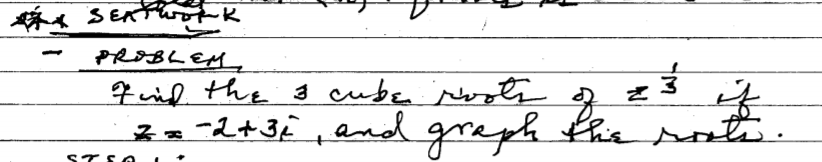 SEATWORK
- PROBLEM
Find the 3 cube roots of z^1/3 if
z = -2+3i, and graph the roots.
STEP 1: